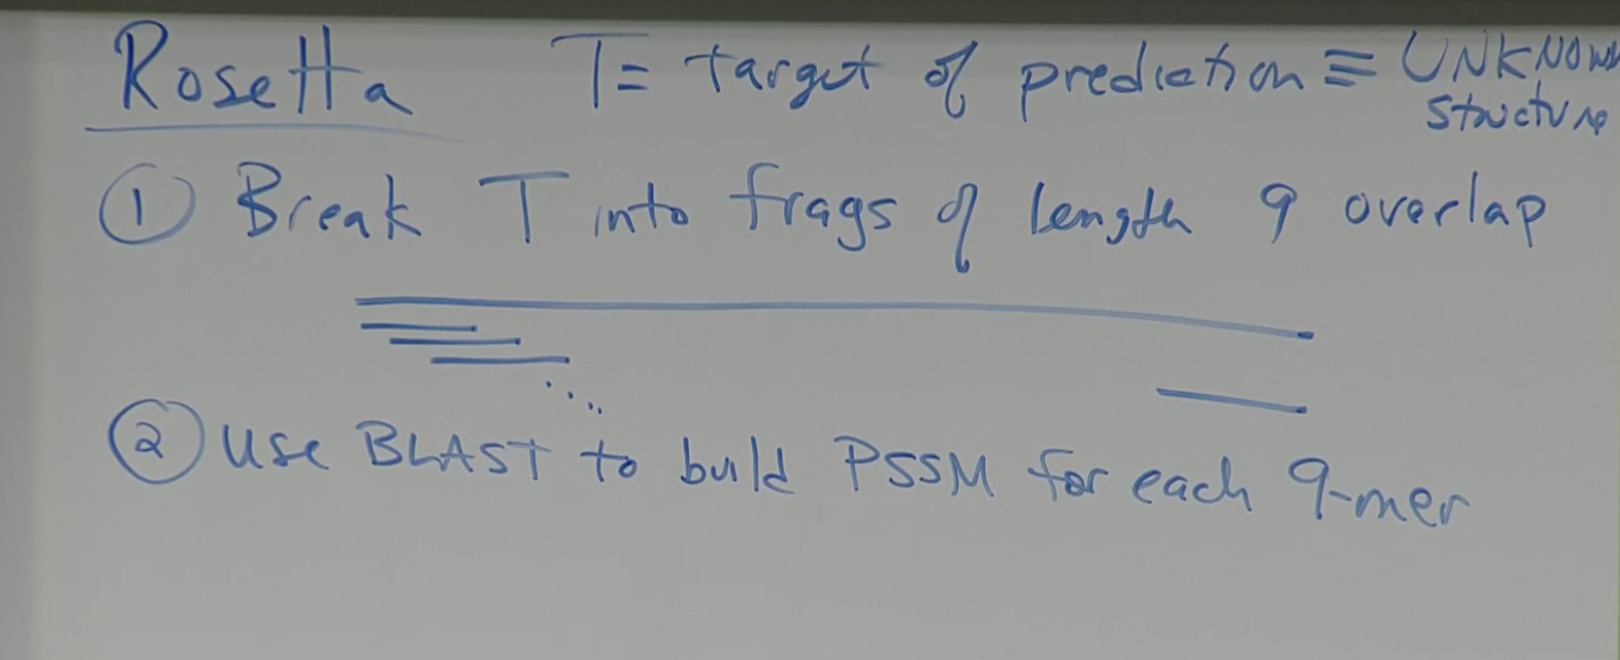 Rosetta T = target of prediction ≡ UNKNOWN
structure
① Break T into frags of length 9 overlap
② Use BLAST to build PSSM for each 9-mer